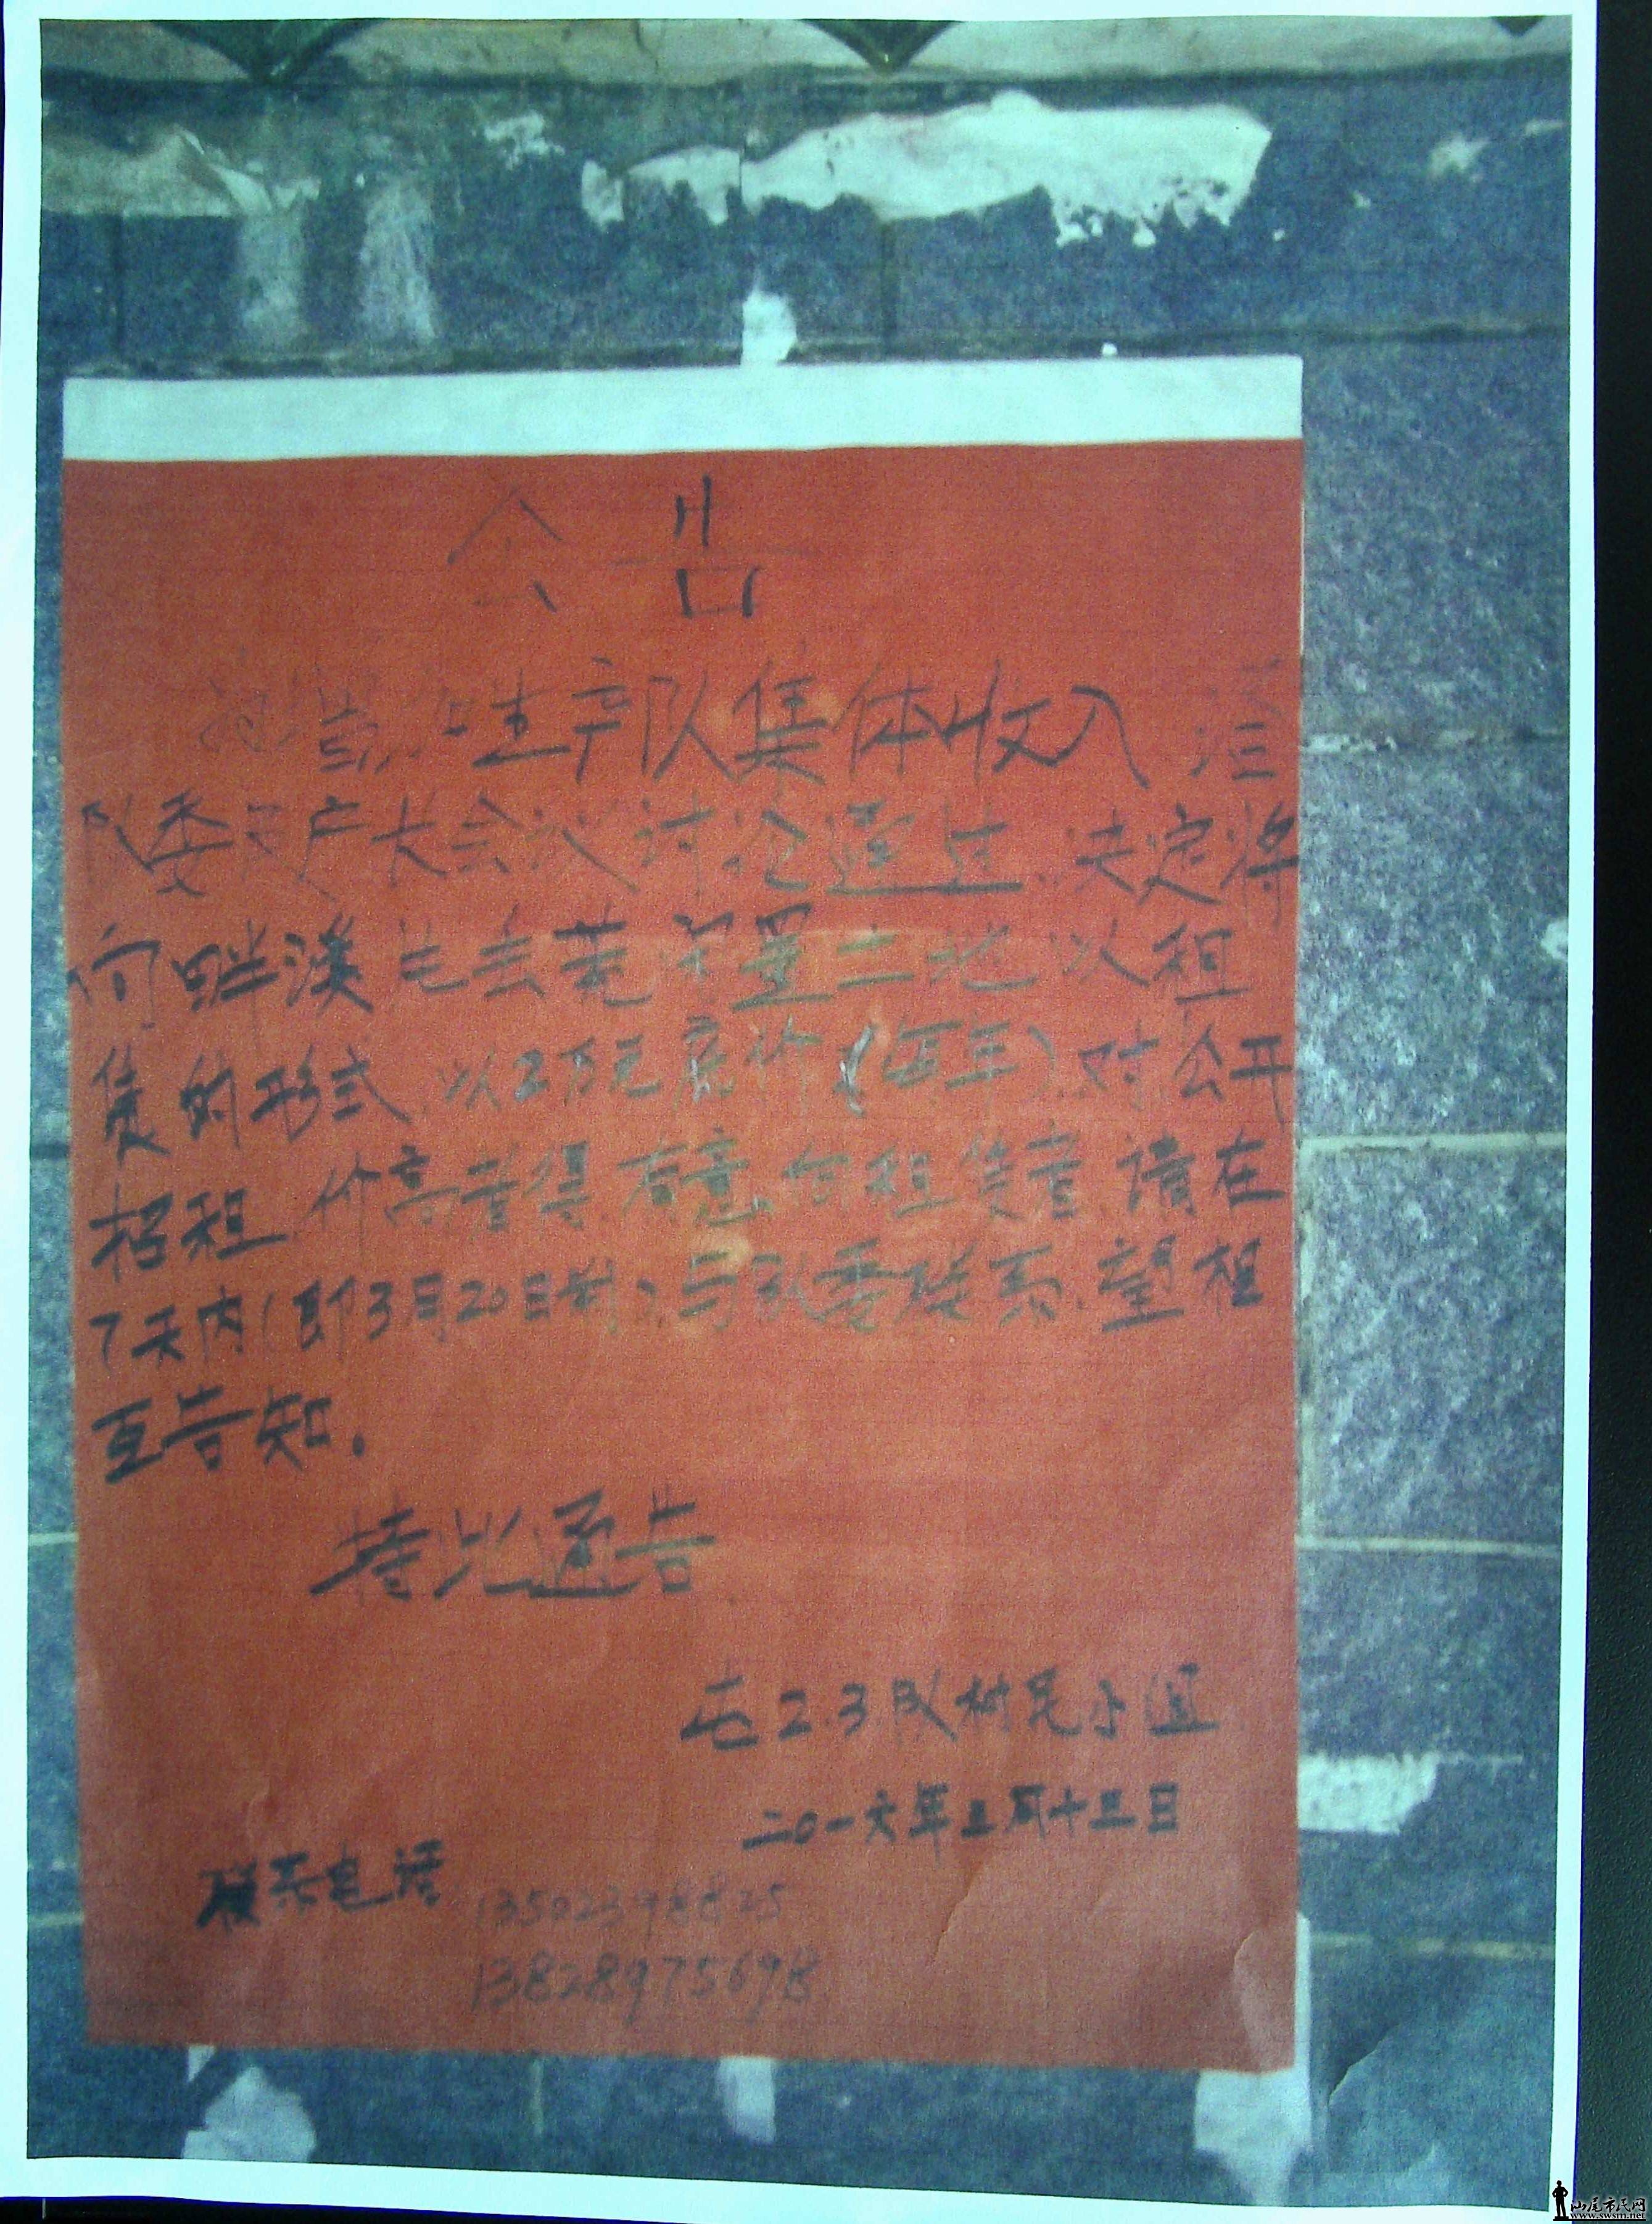 公告
生产队集体收入 经
队委 户大会议讨论通过.决定将
向畔漢 二地 以租
售的形式.以2万元底价(每年).对公开
招租.价高者得.有意向租售者.请在
7天内(即3月20日前)与队委联系.望相
互告知。
特此通告
屯2.3队村民小组
二0一六年三月十三日
联系电话 13502398825
13828975698
汕尾市民网
www.swsm.net